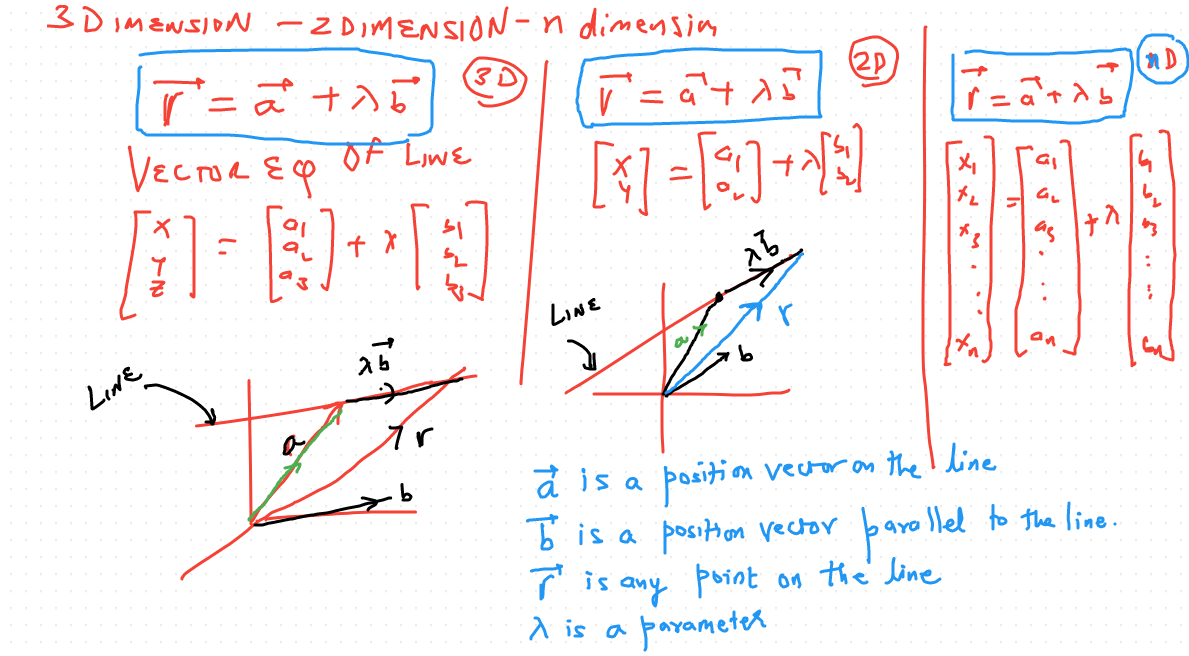 3 DIMENSION - 2 DIMENSION - n dimension
r = a + λb
3D
VECTOR EQ OF LINE
[x y z] = [a1 a2 a3] + λ [b1 b2 b3]
LINE
λb
a
r
b
r = a + λb
2D
[x y] = [a1 a2] + λ [b1 b2]
LINE
λb
a
r
b
r = a + λb
nD
[x1 x2 x3 : : xn] = [a1 a2 a3 : : an] + λ [b1 b2 b3 : : bn]
a is a position vector on the line
b is a position vector parallel to the line.
r is any point on the line
λ is a parameter